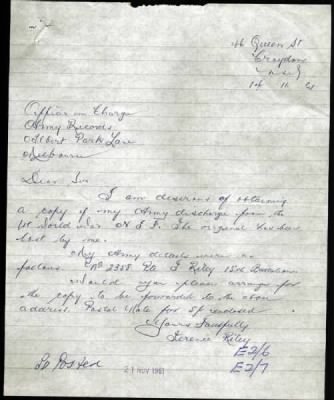 Queen St
Croydon
Officer in Charge
Army Records
Albert Park
Melbourne
Dear Sir
I am desirous of obtaining
a copy of my Army discharge from the
1st World War A I F. The original
lost by me.
My Army details were as
Riley 15th Battalion
Would you please arrange for
the copy to be forwarded to the above
address. Postal Note for 5/ enclosed
Yours Faithfully
Terence Riley
E2/6
E2/7
21 NOV 1961